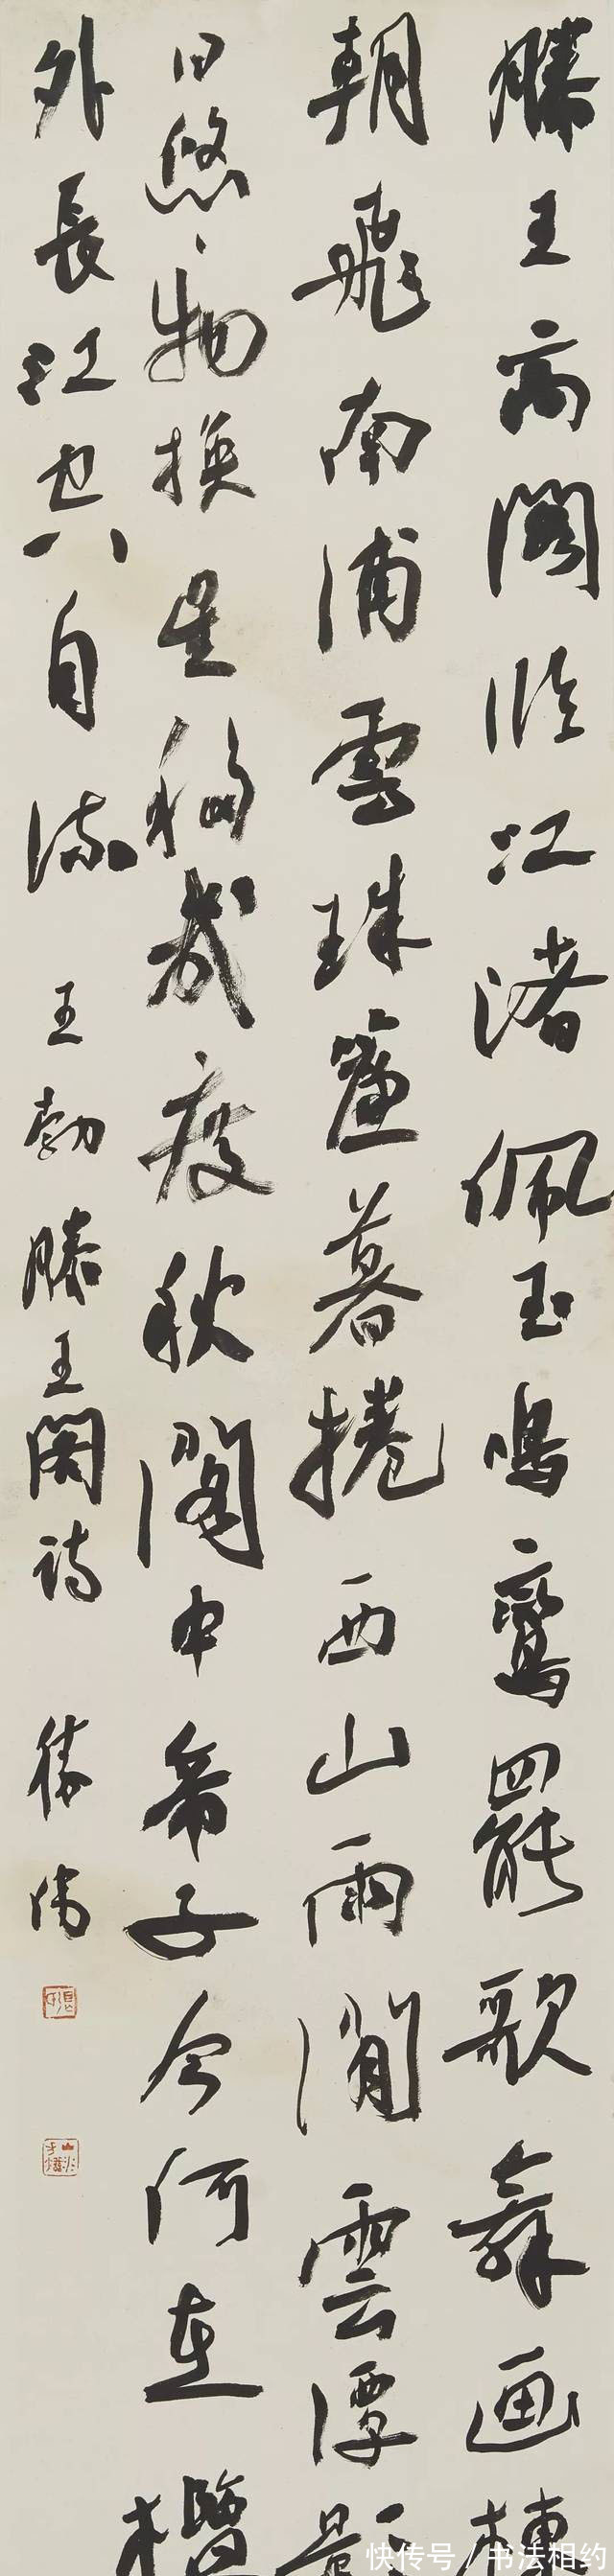 滕王高閣臨江渚佩玉鳴鸞罷歌舞画棟
朝飛南浦雲珠簾暮捲西山雨閒雲潭影
日悠々物換星移幾度秋閣中帝子今何在檻
外長江空自流 王勃滕王閣詩
快传号/书法相约